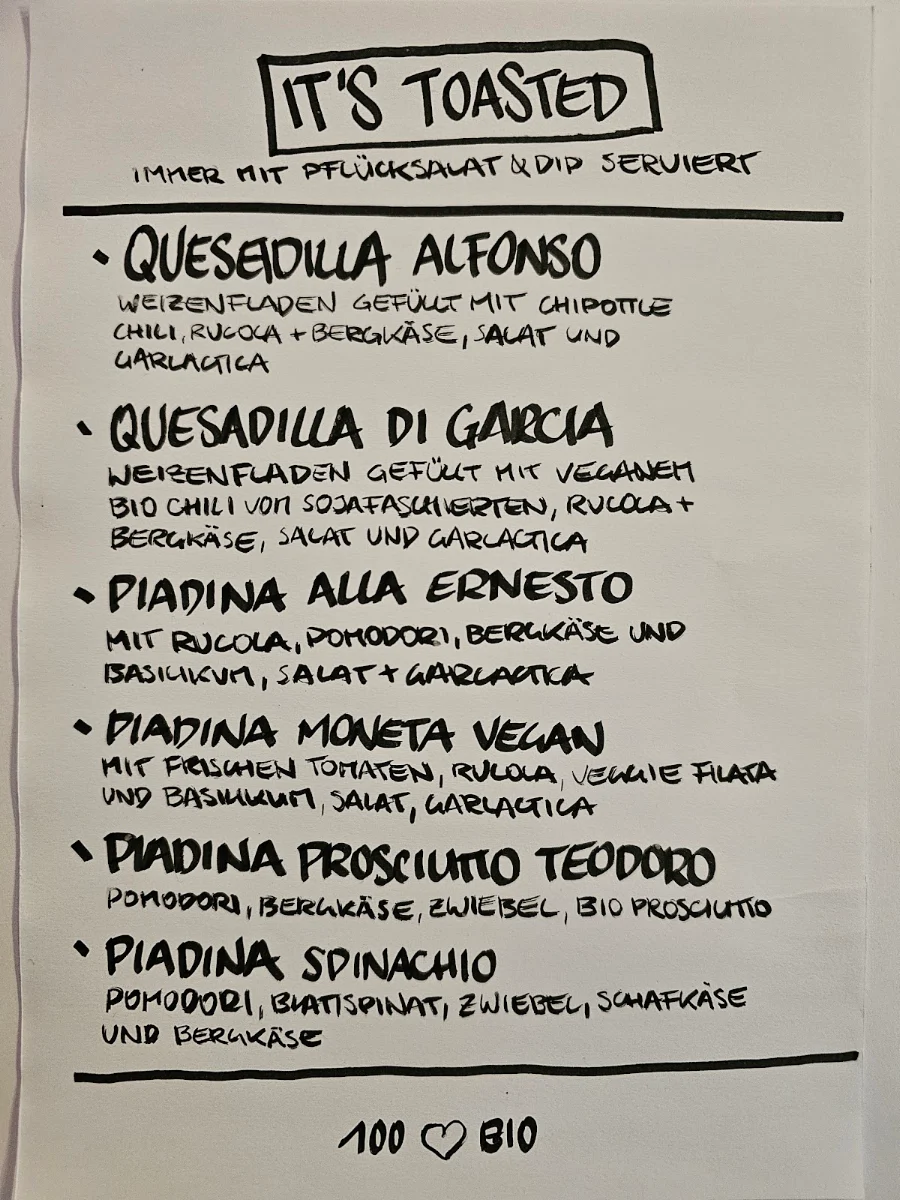 IT'S TOASTED
IMMER MIT PFLÜCKSALAT & DIP SERVIERT
QUESADILLA ALFONSO
WEIZENFLADEN GEFÜLLT MIT CHIPOTTLE
CHILI, RUCOLA + BERGKÄSE, SALAT UND
GARLACTICA
QUESADILLA DI GARCIA
WEIZENFLADEN GEFÜLLT MIT VEGANEM
BIO CHILI VOM SOJAFASCHIERTEN, RUCOLA +
BERGKÄSE, SALAT UND GARLACTICA
PIADINA ALLA ERNESTO
MIT RUCOLA, POMODORI, BERGKÄSE UND
BASILIKUM, SALAT + GARLACTICA
PIADINA MONETA VEGAN
MIT FRISCHEN TOMATEN, RUCOLA, VEGGIE FILATA
UND BASILIKUM, SALAT, GARLACTICA
PIADINA PROSCIUTTO TEODORO
POMODORI, BERGKÄSE, ZWIEBEL, BIO PROSCIUTTO
PIADINA SPINACHIO
POMODORI, BLATTSPINAT, ZWIEBEL, SCHAFKÄSE
UND BERGKÄSE
100 ♡ BIO